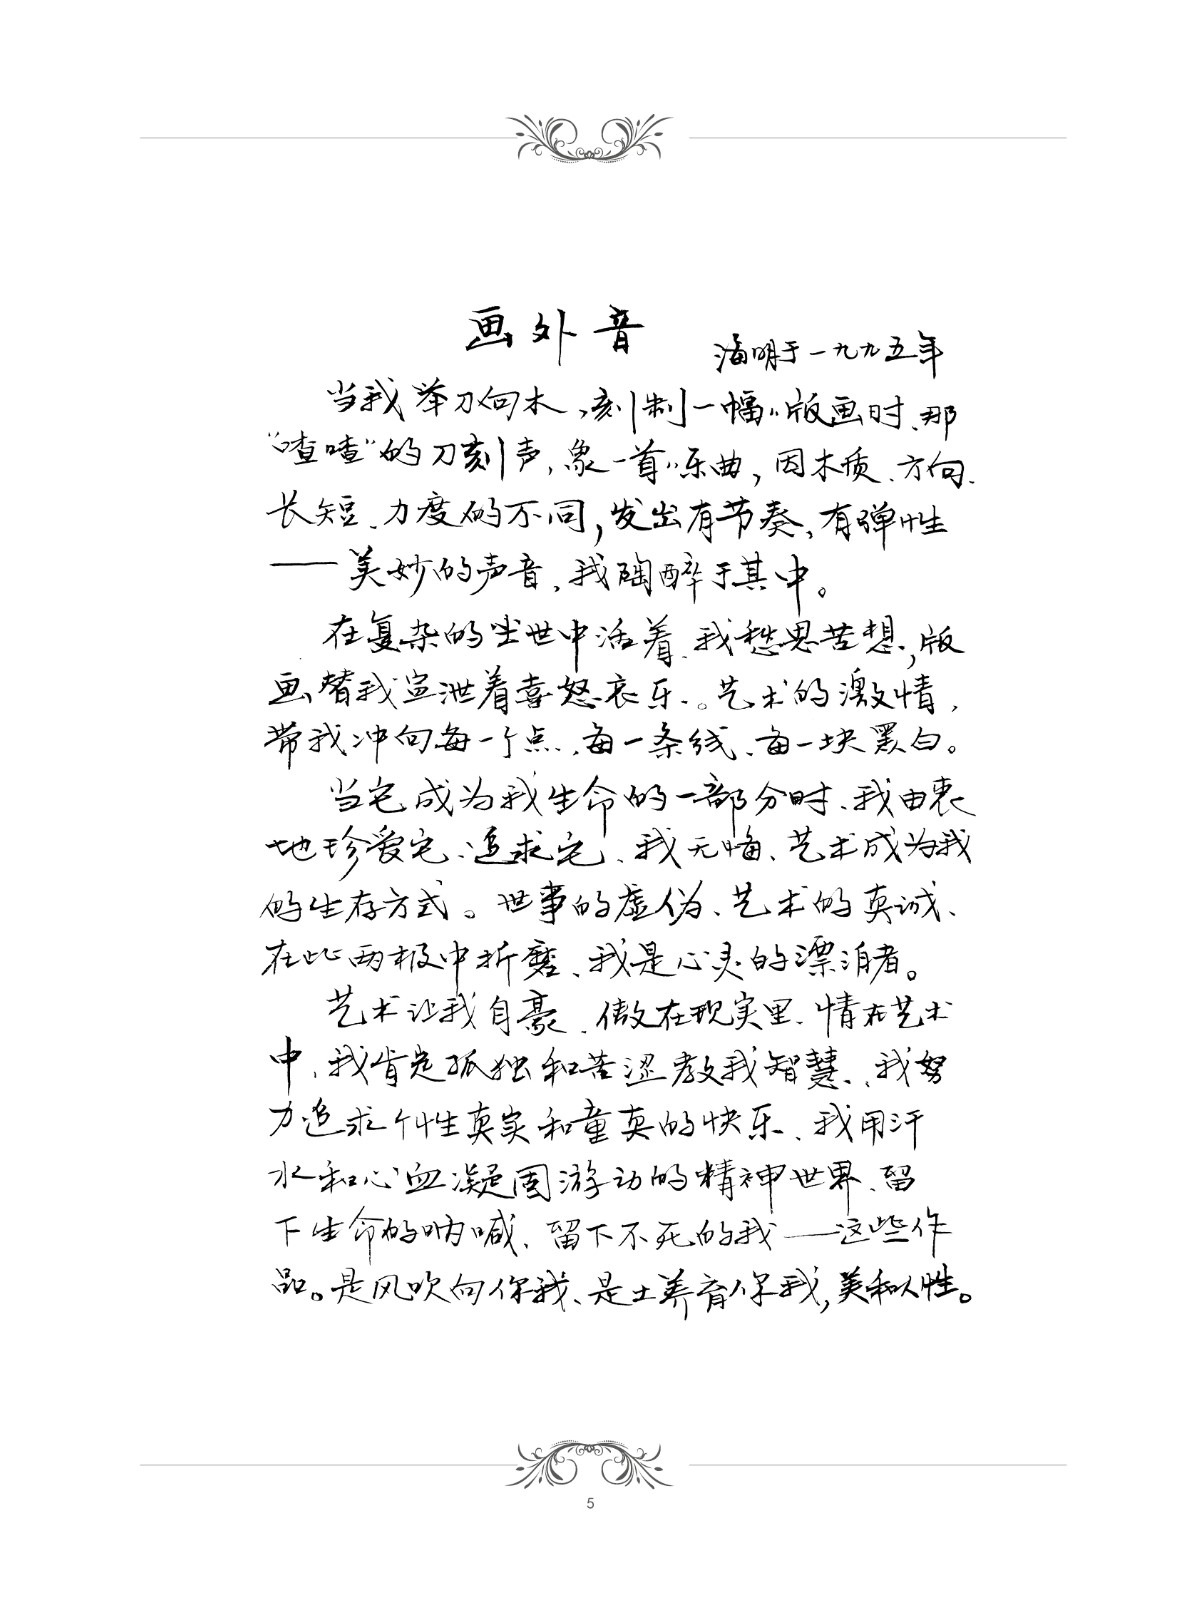 画外音
海明于一九九五年
当我举刀向木，刻制一幅版画时、那
“喳喳”的刀刻声，象一首乐曲，因木质、方向、
长短、力度的不同，发出有节奏、有弹性
——美妙的声音，我陶醉于其中。
在复杂的尘世中活着、我愁思苦想，版
画替我宣泄着喜怒哀乐。艺术的激情，
带我冲向每一个点，每一条线、每一块黑白。
当它成为我生命的一部分时、我由衷
地珍爱它、追求它、我无悔、艺术成为我
的生存方式。世事的虚伪、艺术的真诚、
在此两极中折磨、我是心灵的漂泊者。
艺术让我自豪、傲在现实里、情在艺术
中、我肯定孤独和苦涩教我智慧、我努
力追求个性真实和童真的快乐、我用汗
水和心血凝固游动的精神世界、留
下生命的呐喊、留下不死的我——这些作
品。是风吹向你我、是土养育你我，美和人性。
5